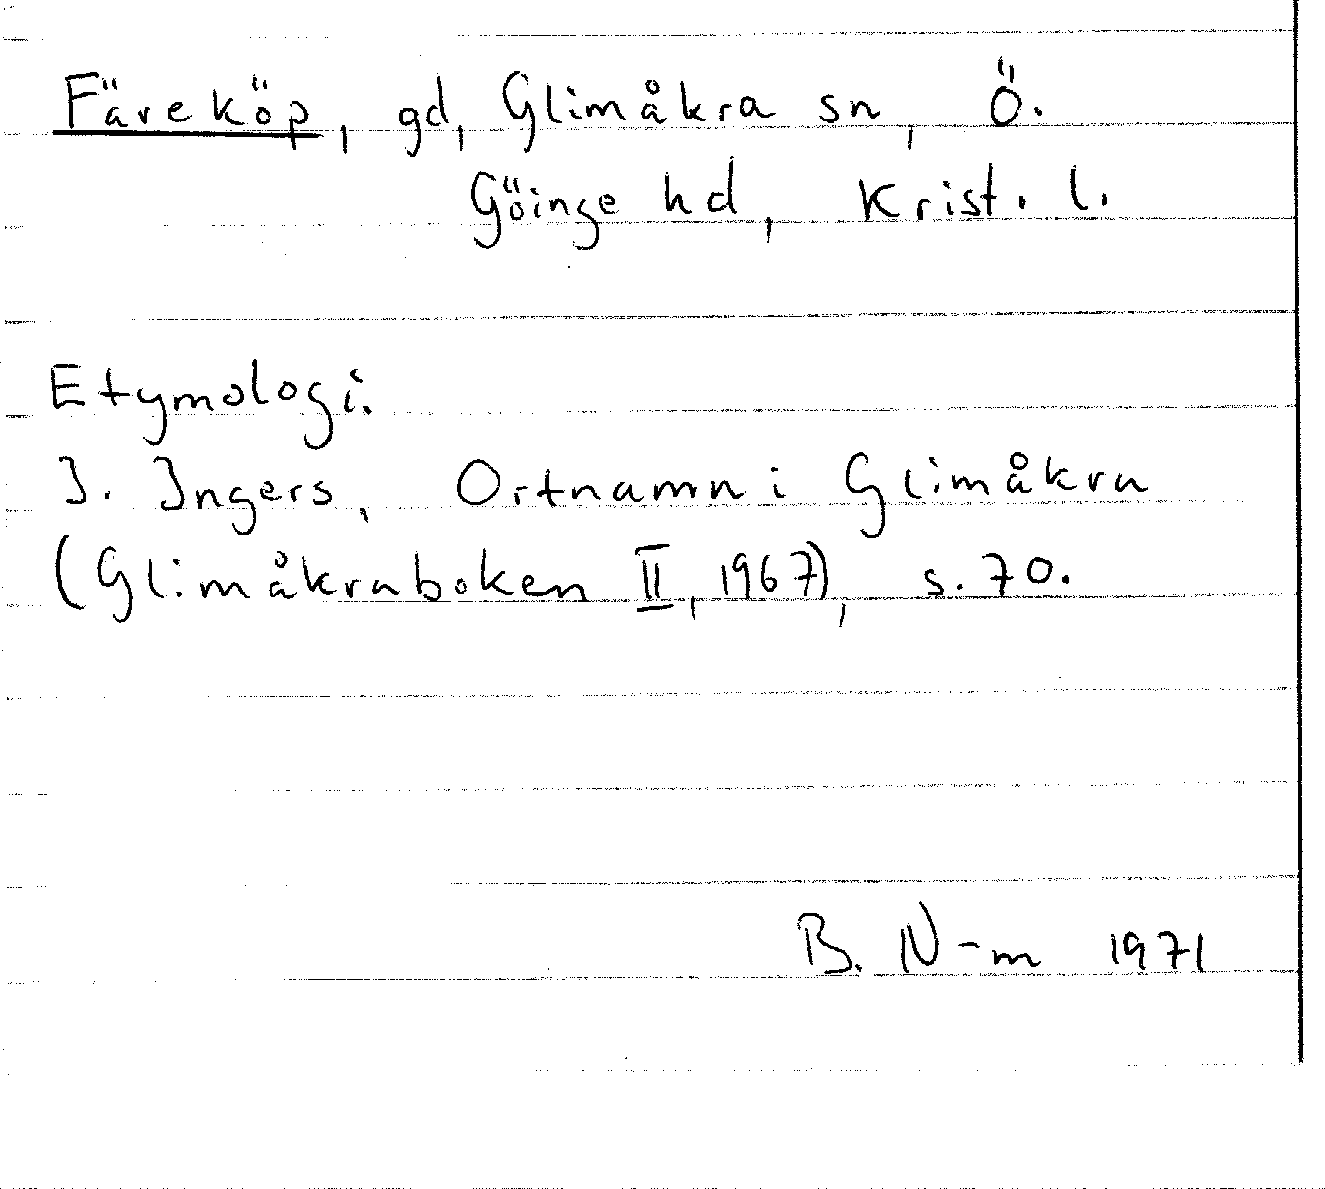 Färeköp, gd, Glimåkra sn, Ö.
Göinge hd, Krist. l.
Etymologi.
I. Ingers, Ortnamn i Glimåkra
(Glimåkraboken II, 1967), s. 70.
B. N-m 1971